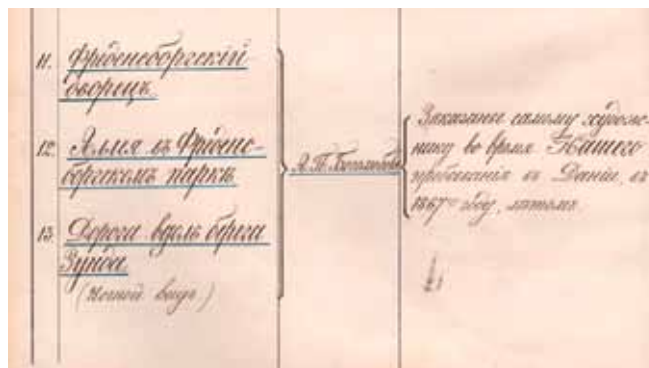 11. Фрiденсборгскiй
дворецъ.
12. Аллея въ Фрiденс-
боргскомъ паркѣ.
13. Дорога вдоль берега
Зунда.
(Ночной видъ.)
А. П. Боголюбовъ
Заказаны самому худож-
нику во время Нашего
пребыванiя въ Данiи, въ
1867 году, лѣтомъ.